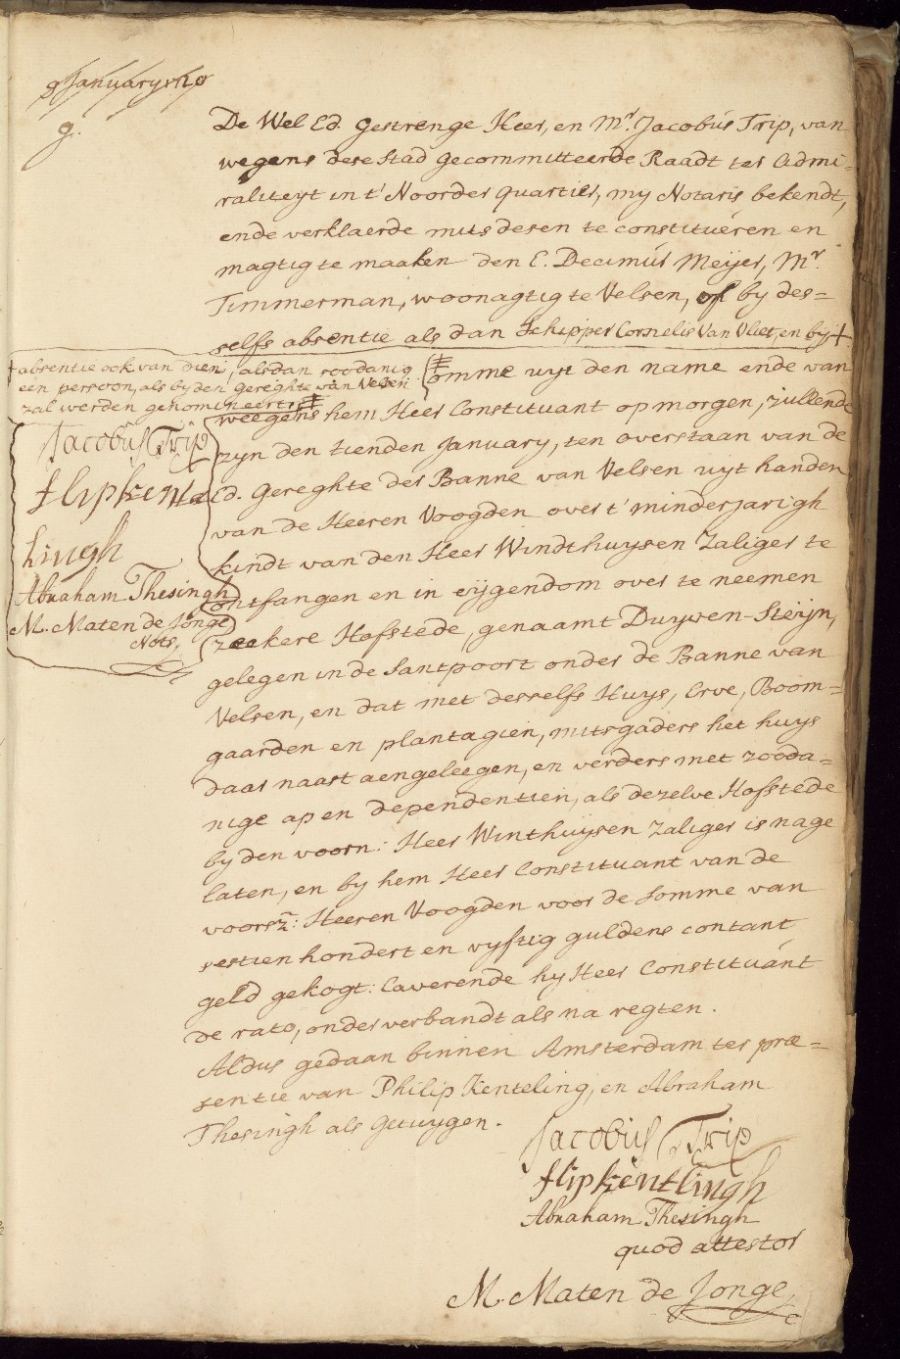 9 January 1710
g.
De Wel Ed. gestrenge Heer, en Mr. Jacobus Trip, van
wegens dese Stad gecommitteerde Raadt ter Admi-
raliteyt in t' Noorder quartier, my Notaris bekendt,
ende verklaerde mits desen te constitueren en
magtig te maaken den E. Decimus Meijer, Mr.
Timmerman, woonagtig te Velsen, of by des=
selfs absentie als dan Schipper Cornelis Van Vliet, en by +
+ absentie ook van dien, alsdan soodanig
een persoon, als by den gereghte van Velsen
zal werden genomineert
Jacobus Trip
flipkente
lingh
Abraham Thesingh
M. Maten de Jonge
Nots.
omme uyt den name ende van
weegens hem Heer Constituant op morgen, zullende
zyn den tienden January, ten overstaan van de
Ed. Gereghte der Banne van Velsen uyt handen
van de Heeren Voogden over t' minderjarigh
kindt van den Heer Windthuysen Zaliger te
ontfangen en in eijgendom over te neemen
zeekere Hofstede, genaamt Duywen-Steijn,
gelegen in de Santpoort onder de Banne van
Velsen, en dat met desselfs Huys, Erve, Boom=
gaarden en plantagien, mitsgaders het huys
daar naast aengeleegen, en verders met zooda=
nige ap en dependentien, als dezelve Hofstede
by den voorn: Heer Winthuysen Zaliger is nage
laten, en by hem Heer Constituant van de
voorsz: Heeren Voogden voor de somme van
sestien hondert en vyftig guldens contant
geld gekogt: Caverende hy Heer Constituant
de rato, onder verbandt als na regten.
Aldus gedaan binnen Amsterdam ter præ=
sentie van Philip Kenteling, en Abraham
Thesingh als getuygen.
Jacobus Trip
flipkentlingh
Abraham Thesingh
quod attestor
M. Maten de Jonge